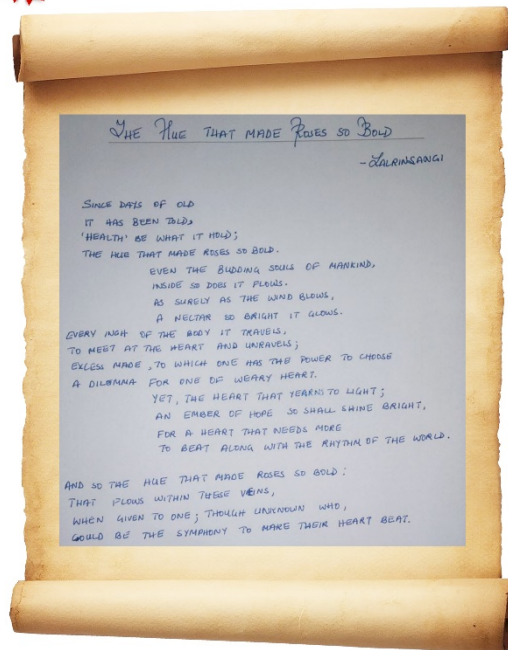 THE HUE THAT MADE ROSES SO BOLD
- LALRINSANGI
SINCE DAYS OF OLD
IT HAS BEEN TOLD,
'HEALTH' BE WHAT IT HOLD;
THE HUE THAT MADE ROSES SO BOLD.
EVEN THE BUDDING SOULS OF MANKIND,
INSIDE SO DOES IT FLOWS.
AS SURELY AS THE WIND BLOWS,
A NECTAR SO BRIGHT IT GLOWS.
EVERY INCH OF THE BODY IT TRAVELS,
TO MEET AT THE HEART AND UNRAVELS;
EXCESS MADE, TO WHICH ONE HAS THE POWER TO CHOOSE
A DILEMMA FOR ONE OF WEARY HEART.
YET, THE HEART THAT YEARN TO LIGHT;
AN EMBER OF HOPE SO SHALL SHINE BRIGHT,
FOR A HEART THAT NEEDS MORE
TO BEAT ALONG WITH THE RHYTHM OF THE WORLD.
AND SO THE HUE THAT MADE ROSES SO BOLD:
THAT FLOWS WITHIN THESE VEINS,
WHEN GIVEN TO ONE; THOUGH UNKNOWN WHO,
COULD BE THE SYMPHONY TO MAKE THEIR HEART BEAT.